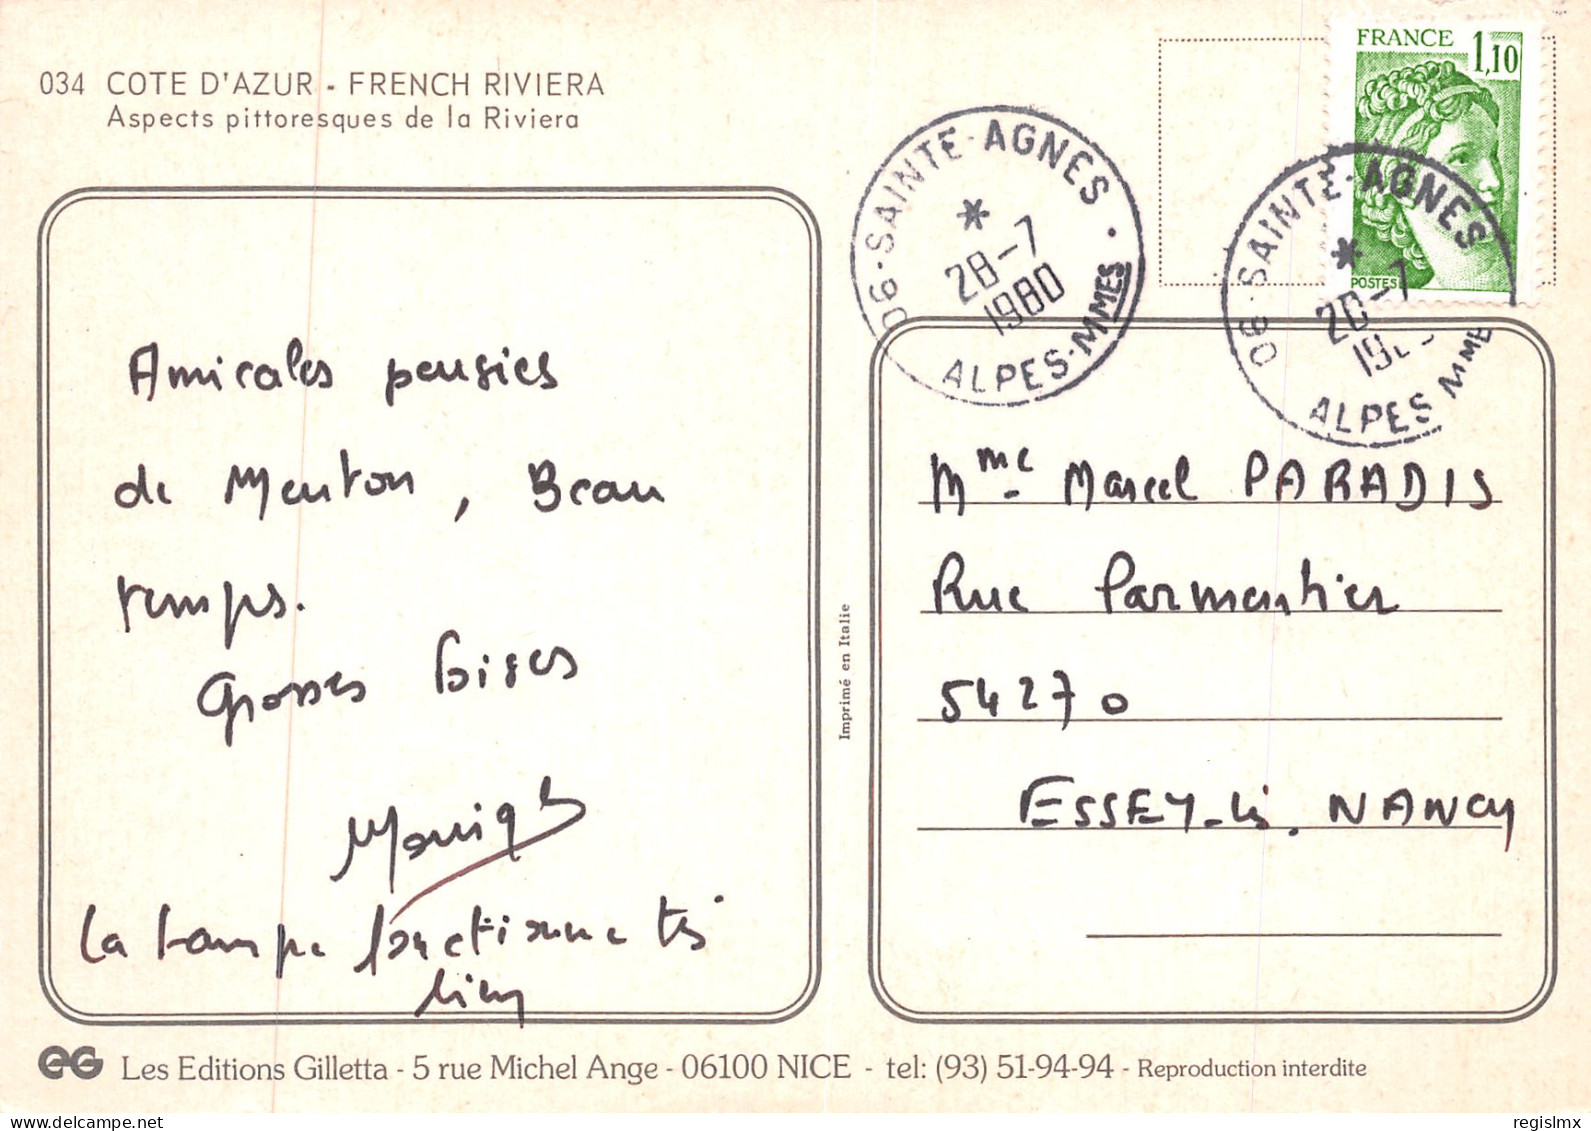 034 COTE D'AZUR - FRENCH RIVIERA
Aspects pittoresques de la Riviera
FRANCE 1,10
POSTES
06 · SAINTE-AGNES ·
*
28-7
1980
ALPES-MMES
06 · SAINTE-AGNES
*
28-7
ALPES MME
Amicales pensées
de Menton, Beau
temps.
Grosses bises
Monique
La lampe fonctionne très
bien
Imprimé en Italie
Mme Marcel PARADIS
Rue Parmentier
54270
ESSEY-lès-NANCY
eG Les Editions Gilletta - 5 rue Michel Ange - 06100 NICE - tel: (93) 51-94-94 - Reproduction interdite
regislmx